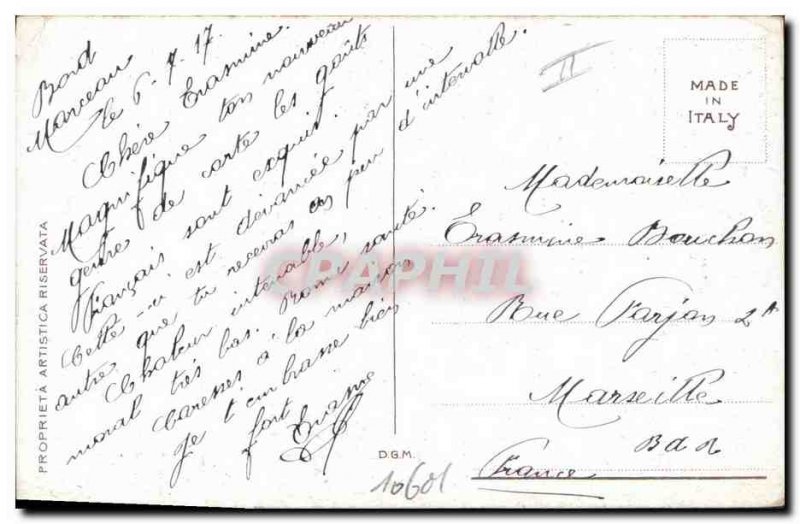 Bord
Marceau
le 6.7.17.
Chère Erasmine.
Magnifique ton nouveau
genre de carte les goûts
français sont exquis.
Cette -ci est devancée par une
autre que tu recevras en peu
d'intervalle.
Chaleur intenable,
moral très bas. Bonne santé.
Caresses à la maison
je t'embrasse bien
fort
Erasme
PROPRIETÀ ARTISTICA RISERVATA
D.G.M.
10601
II
MADE
IN
ITALY
Mademoiselle
Erasmine Bouchon
Rue Farjon 2A
Marseille
B d R
France
CPAPHIL